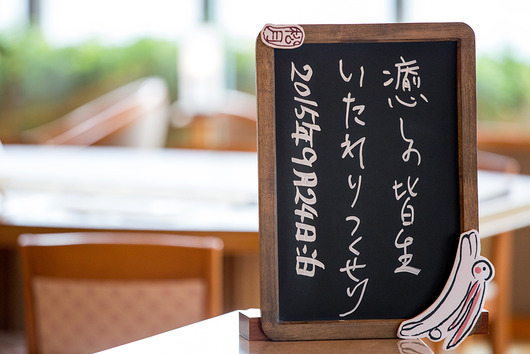 癒しの皆生
いたれりつくせり
2015年9月24日泊